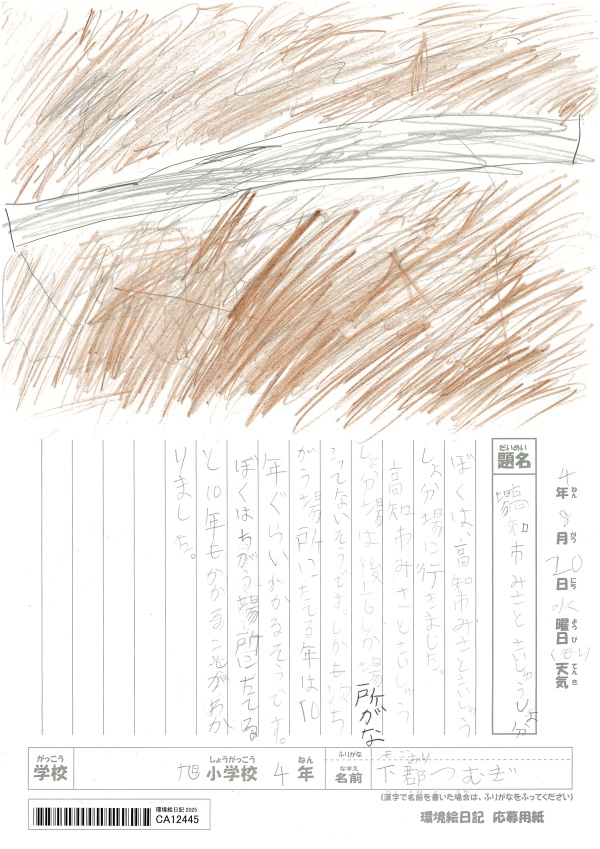 4年8月20日水曜日くもり天気
ねん がつ にち ようび てんき
だいめい
題名
高知市みさとさいしゅうしょ分場
ぼくは、高知市みさとさいしゅう
しょ分場に行きました。
高知市みさとさいしゅう
しょ分場は後16しか場所がな
ってないそうです。しかもつぎ
がう場所にたてる年は10
年ぐらいかかるそうです。
ぼくはちがう場所にたてる
と10年もかかることがわか
りました。
がっこう
学校
旭
しょうがっこう
小学校
4
ねん
年
ふりがな
なまえ
名前
しもごおり
下郡つむぎ
(漢字で名前を書いた場合は、ふりがなをふってください)
環境絵日記 応募用紙
環境絵日記 2025
CA12445